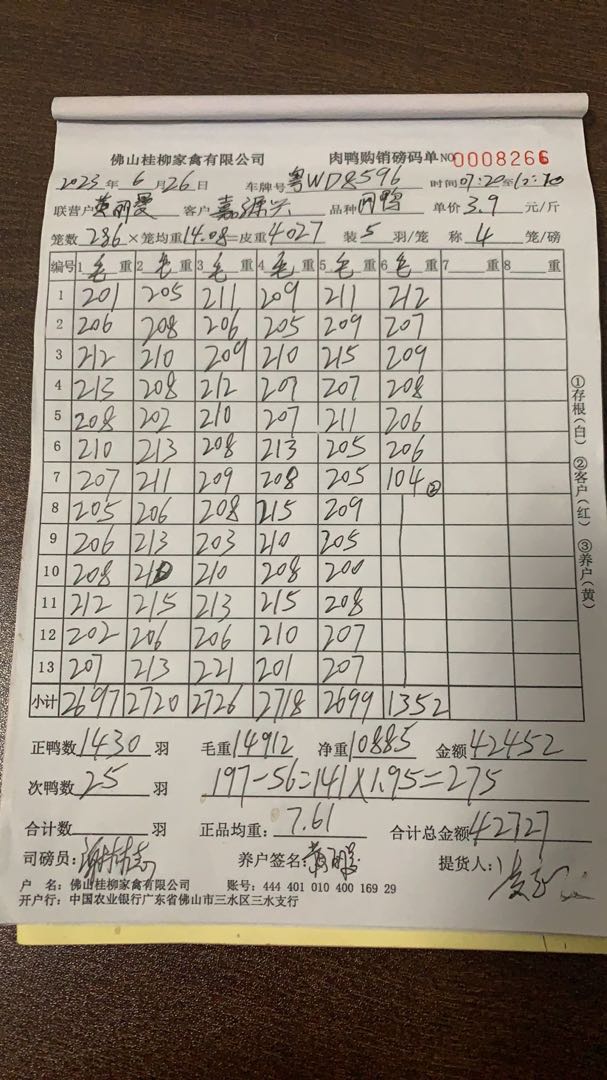 佛山桂柳家禽有限公司 肉鸭购销磅码单 NO 0008266
2023 年 6 月 26 日 车牌号 粤WD8596 时间 07:20至
联营户 黄 客户 嘉源兴 品种 肉鸭 单价 3.9 元/斤
笼数 286 ×笼均重 14.08 =皮重 4027 装 5 羽/笼 称 4 笼/磅
编号 1 毛 重 2 毛 重 3 毛 重 4 毛 重 5 毛 重 6 毛 重 7 重 8 重
1 201 205 211 209 211 212
2 206 208 206 205 209 207
3 212 210 209 210 215 209
4 213 208 212 207 207 208
5 208 202 210 207 211 206
6 210 213 208 213 205 206
7 207 211 209 208 205 104 ②
8 205 206 208 215 209
9 206 213 203 210 205
10 208 210 210 208 200
11 212 215 213 215 208
12 202 206 206 210 207
13 207 213 221 201 207
小计 2697 2720 2726 2718 2699 1352
正鸭数 1430 羽 毛重 14912 净重 10885 金额 42452
次鸭数 25 羽 197-56=141×1.95=275
合计数 羽 正品均重: 7.61 合计总金额 42727
司磅员: 养户签名: 提货人:
户 名: 佛山桂柳家禽有限公司 账号: 444 401 010 400 169 29
开户行: 中国农业银行广东省佛山市三水区三水支行
①存根(白) ②客户(红) ③养户(黄)